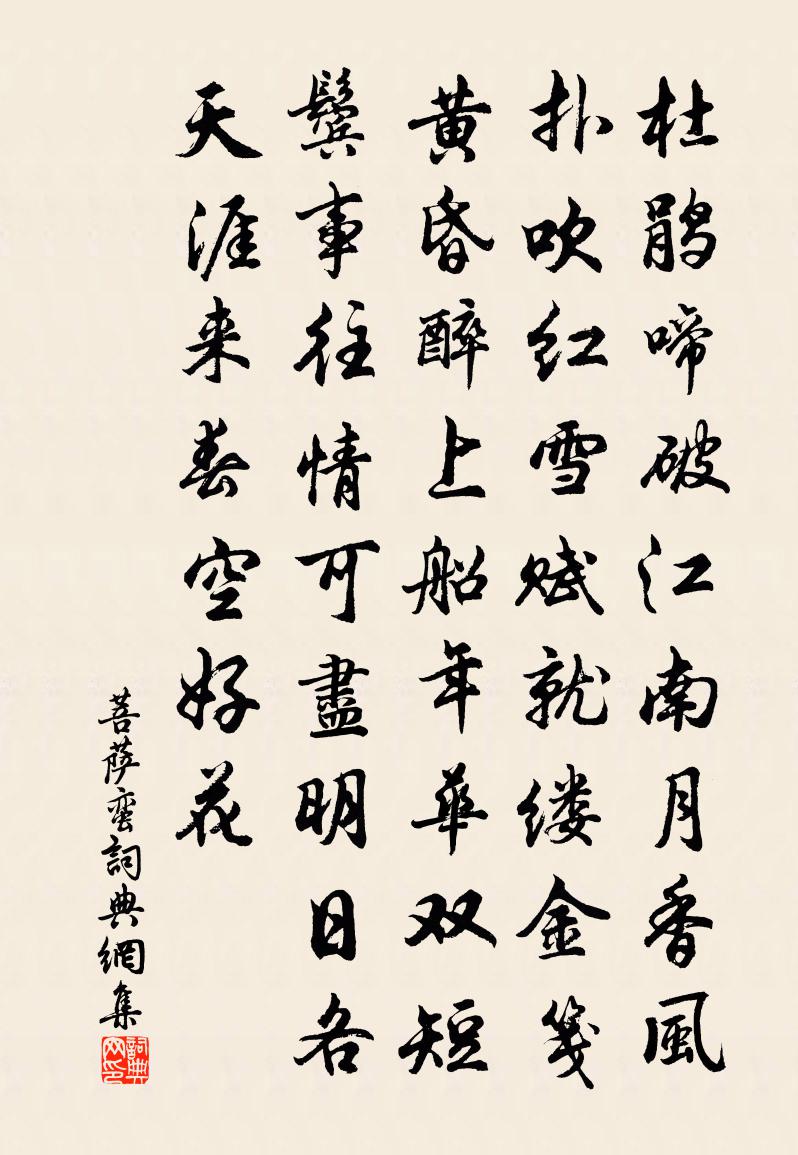 杜鹃啼破江南月香風
扑吹红雪赋就缕金笺
黄昏醉上船年華双短
鬓事往情可盡明日各
天涯来春空好花
菩萨蛮詞典網集
詞典网印